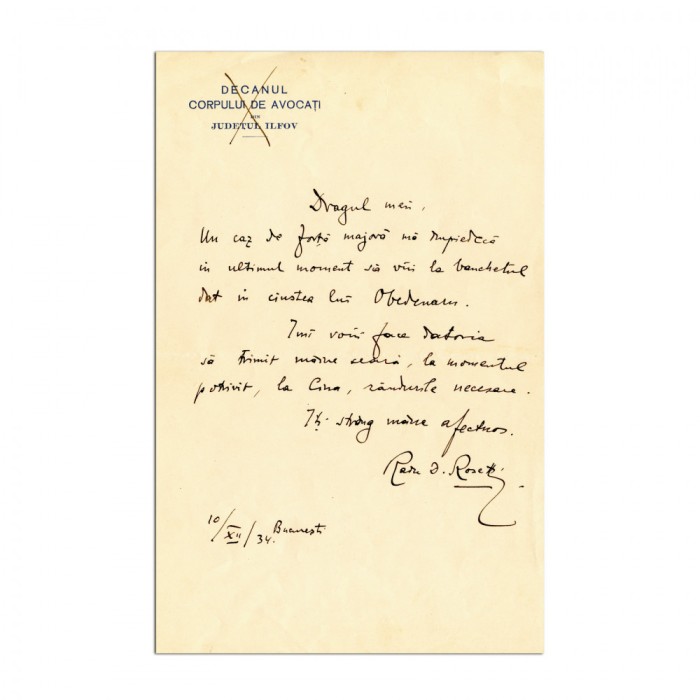 DECANUL
CORPULUI DE AVOCAȚI
DIN
JUDEȚUL ILFOV
Dragul meu,
Un caz de forță majoră mă împiedică
in ultimul moment să viu la banchetul
dat in cinstea lui Obedenaru.
Îmi voiu face datoria
să trimit mâine seară, la momentul
potrivit, la Cina, rândurile necesare.
Iți strâng mâna afectuos.
Radu D. Rosetti
10/XII/34. București